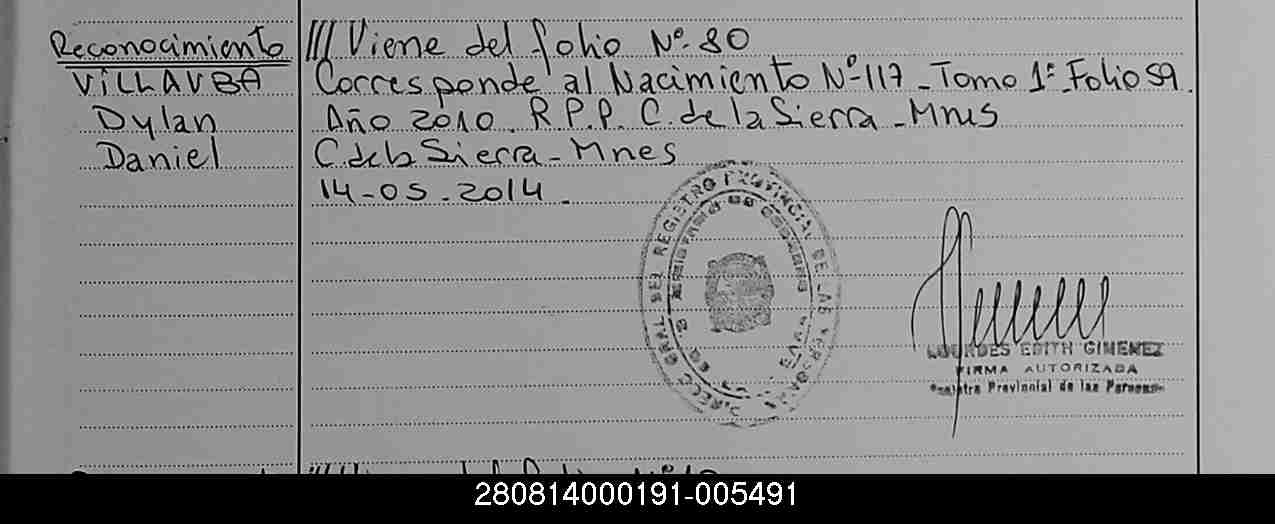 Reconocimiento
VILLALBA
Dylan
Daniel
/// Viene del folio Nº-80
Corresponde al Nacimiento Nº-117-Tomo 1º-Folio 59.
Año 2010. R.P.P. C. de la Sierra-Mnes
C. de la Sierra-Mnes
14-05-2014.
DEL REGISTRO PROVINCIAL DE LAS PERSONAS
LOURDES EDITH GIMENEZ
FIRMA AUTORIZADA
Registro Provincial de las Personas
280814000191-005491